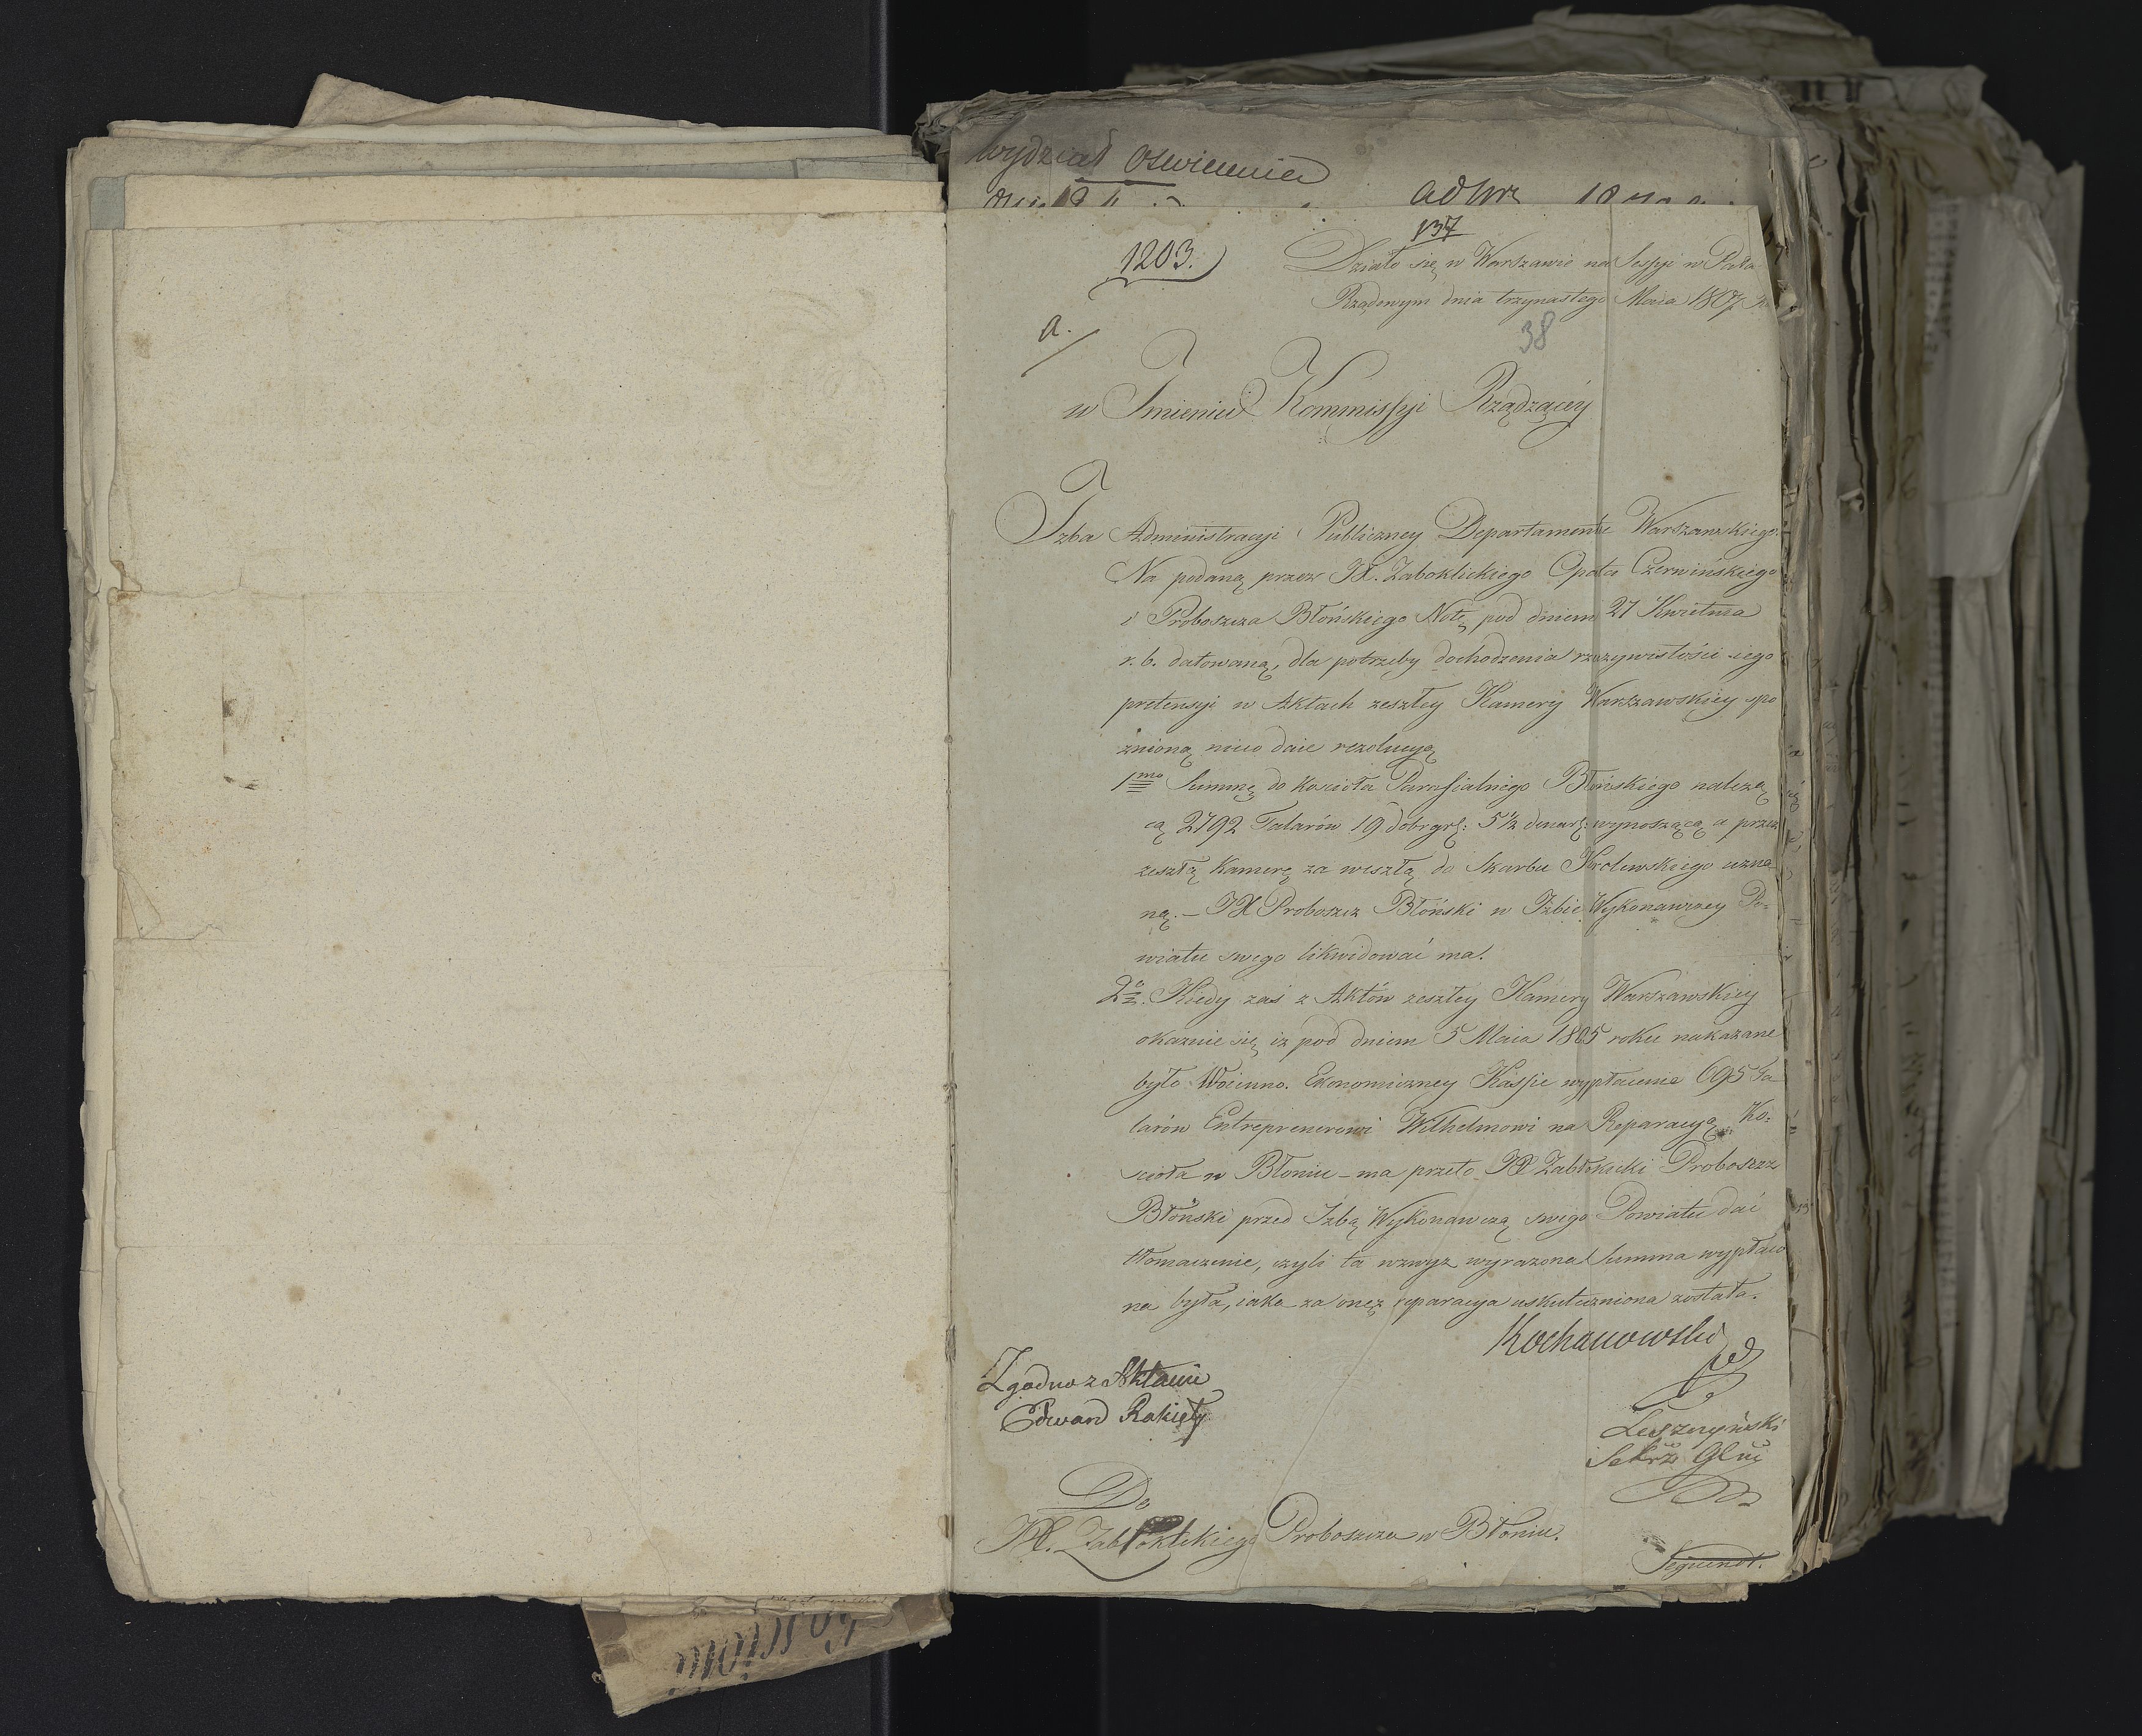 Wydział Oświecenia
137
1203.) Działo się w Warszawie na Sessyi w Pała
Rządowym dnia trzynastego Maia 1807
a.
38
w Imieniu Kommissyi Rządzącéy
Izba Administracyi Publiczney Departamentu Warszawskiego.
Na podaną przez JX. Zaboklickiego Opata Czerwińskiego
i Proboszcza Błońskiego Notę pod dniem 27 Kwietnia
r. b. datowaną, dla potrzeby dochodzenia rzeczywistości iego
pretensyi w Aktach zeszłey Kamery Warszawskiey spo
znioną nieco daie rezolucyą
1mo Summę do kościoła Parafialnego Błońskiego należą
cą 2792 Talarów 19 dobrgrl: 5 1/2 denarl: wynoszącą a przez
zeszłą Kamerę za weszłą do Skarbu Krolewskiego uzna
ną. – JX Proboszcz Błoński w Izbie Wykonawczey Po=
wiatu swego likwidować ma.
2o. Kiedy zaś z Aktów zeszłey Kamery Warszawskiey
okazuie się iz pod dniem 5 Maia 1805 roku nakazane
było Woienno. Ekonomiczney Kassie wypłacenie 695 Ta
larów Entreprenerowi Wilhelmowi na Reparacyą Ko=
scioła w Błoniu – ma przeto JX Zabłokicki Proboszcz
Błoński przed Izbą Wykonawczą swego Powiatu dać
tłomaczenie, czyli ta wzwyz wyrazona Summa wypłaco
na była, iaka za onez reparacya uskuteczniona została.
Kochanowski
Zgodno z Aktami
Edward Rakięty
Leszczyński
Sekrz Glny
Do
JX. Zabłoklickiego Proboszcza w Błoniu.